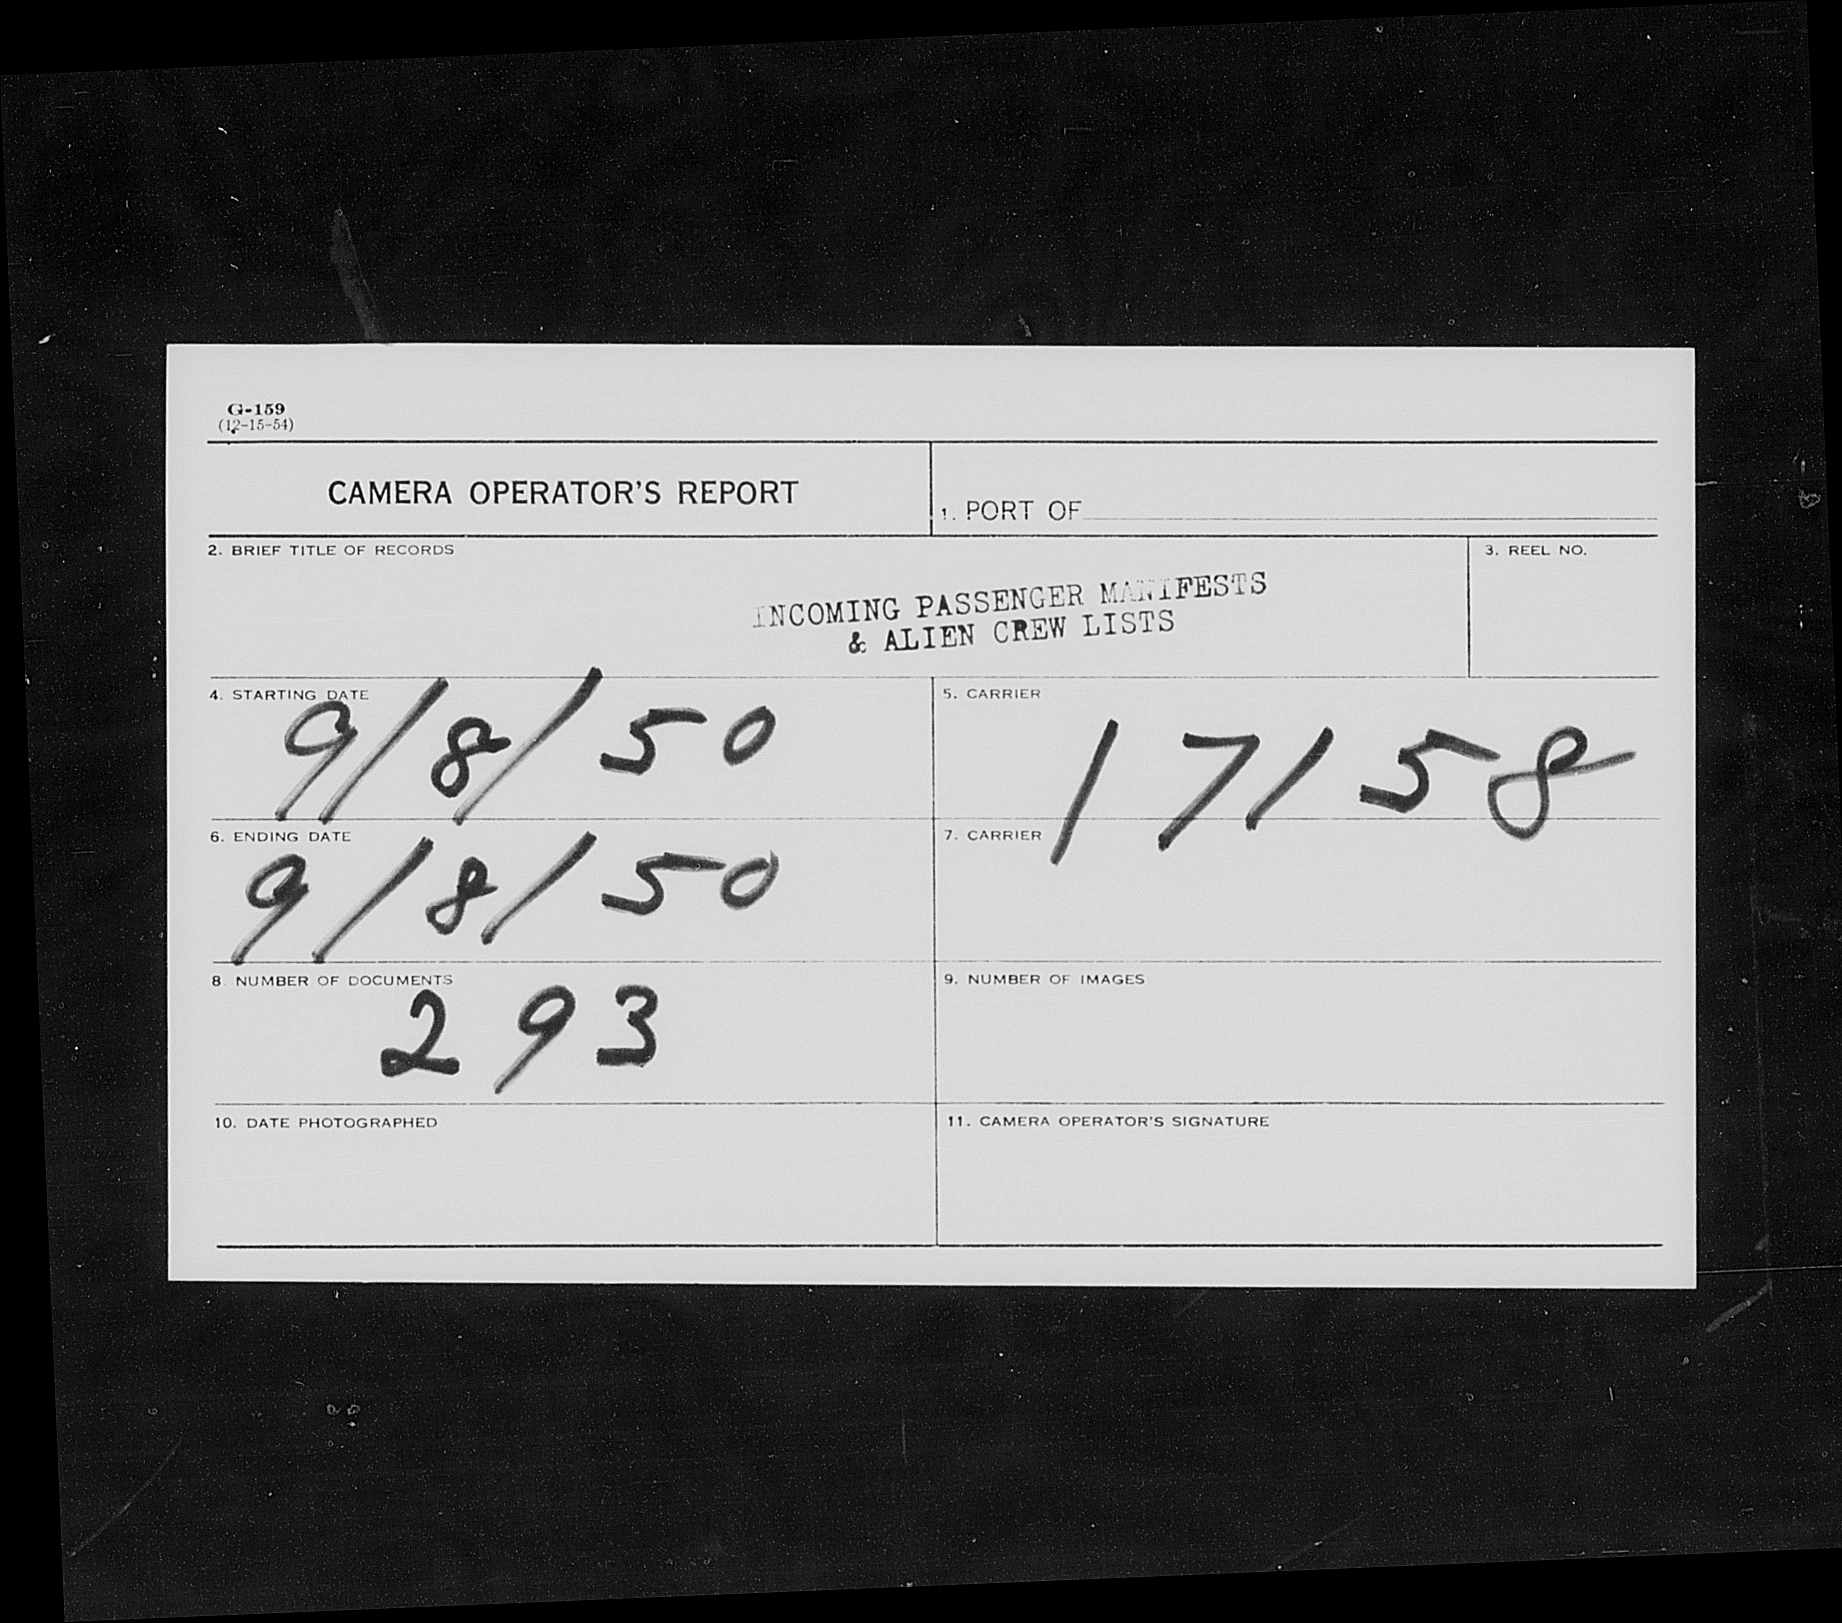 G-159
(12-15-54)
CAMERA OPERATOR'S REPORT
1. PORT OF
2. BRIEF TITLE OF RECORDS
3. REEL NO.
INCOMING PASSENGER MANIFESTS
& ALIEN CREW LISTS
4. STARTING DATE
9/8/50
5. CARRIER
17158
6. ENDING DATE
9/8/50
7. CARRIER
8. NUMBER OF DOCUMENTS
293
9. NUMBER OF IMAGES
10. DATE PHOTOGRAPHED
11. CAMERA OPERATOR'S SIGNATURE